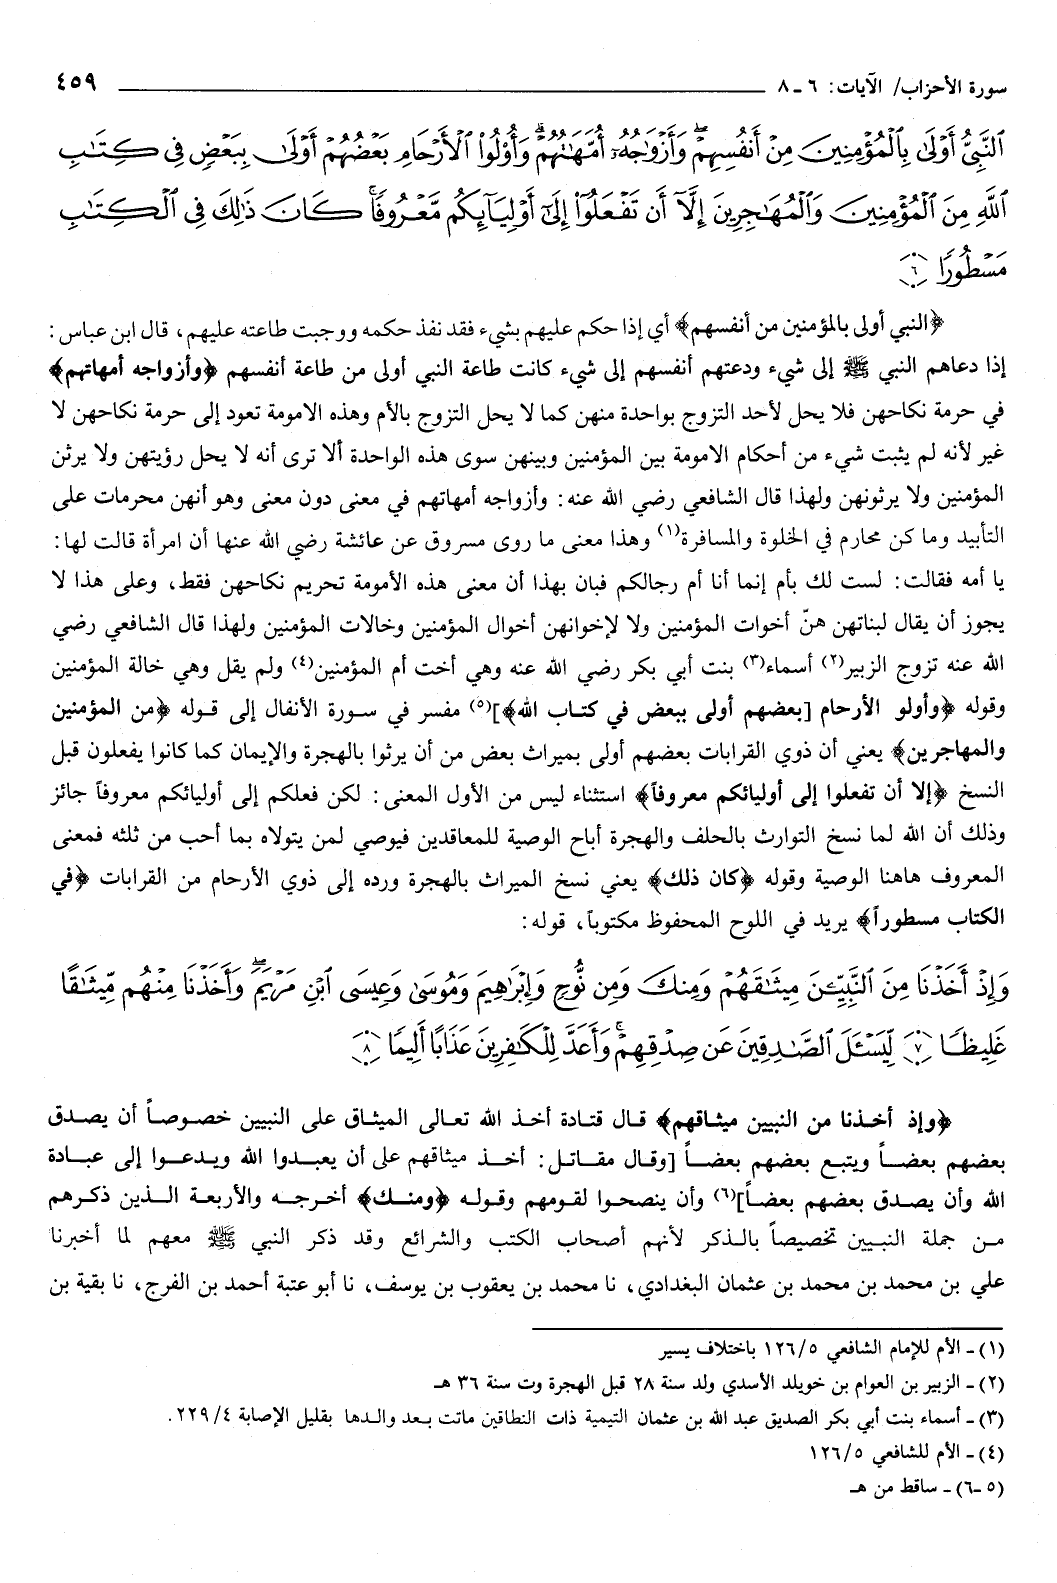 سورة الأحزاب/ الآيات: ٦ ـ ٨ ٤٥٩
ٱلنَّبِيُّ أَوْلَىٰ بِٱلْمُؤْمِنِينَ مِنْ أَنفُسِهِمْ ۖ وَأَزْوَٰجُهُۥٓ أُمَّهَٰتُهُمْ ۗ وَأُو۟لُوا۟ ٱلْأَرْحَامِ بَعْضُهُمْ أَوْلَىٰ بِبَعْضٍ فِى كِتَٰبِ
ٱللَّهِ مِنَ ٱلْمُؤْمِنِينَ وَٱلْمُهَٰجِرِينَ إِلَّآ أَن تَفْعَلُوٓا۟ إِلَىٰٓ أَوْلِيَآئِكُم مَّعْرُوفًا ۚ كَانَ ذَٰلِكَ فِى ٱلْكِتَٰبِ
مَسْطُورًا ٦
﴿النبي أولى بالمؤمنين من أنفسهم﴾ أي إذا حكم عليهم بشيء فقد نفذ حكمه ووجبت طاعته عليهم، قال ابن عباس:
إذا دعاهم النبي ﷺ إلى شيء ودعتهم أنفسهم إلى شيء كانت طاعة النبي أولى من طاعة أنفسهم ﴿وأزواجه أمهاتهم﴾
في حرمة نكاحهن فلا يحل لأحد التزوج بواحدة منهن كما لا يحل التزوج بالأم وهذه الامومة تعود إلى حرمة نكاحهن لا
غير لأنه لم يثبت شيء من أحكام الامومة بين المؤمنين وبينهن سوى هذه الواحدة ألا ترى أنه لا يحل رؤيتهن ولا يرثن
المؤمنين ولا يرثونهن ولهذا قال الشافعي رضي الله عنه: وأزواجه أمهاتهم في معنى دون معنى وهو أنهن محرمات على
التأبيد وما كن محارم في الخلوة والمسافرة(١) وهذا معنى ما روى مسروق عن عائشة رضي الله عنها أن امرأة قالت لها:
يا أمه فقالت: لست لك بأم إنما أنا أم رجالكم فبان بهذا أن معنى هذه الأمومة تحريم نكاحهن فقط، وعلى هذا لا
يجوز أن يقال لبناتهن هنّ أخوات المؤمنين ولا لإخوانهن أخوال المؤمنين وخالات المؤمنين ولهذا قال الشافعي رضي
الله عنه تزوج الزبير(٢) أسماء(٣) بنت أبي بكر رضي الله عنه وهي أخت أم المؤمنين(٤) ولم يقل وهي خالة المؤمنين
وقوله ﴿وأولو الأرحام [بعضهم أولى ببعض في كتاب الله﴾](٥) مفسر في سورة الأنفال إلى قوله ﴿من المؤمنين
والمهاجرين﴾ يعني أن ذوي القرابات بعضهم أولى بميراث بعض من أن يرثوا بالهجرة والإيمان كما كانوا يفعلون قبل
النسخ ﴿إلا أن تفعلوا إلى أوليائكم معروفاً﴾ استثناء ليس من الأول المعنى: لكن فعلكم إلى أوليائكم معروفاً جائز
وذلك أن الله لما نسخ التوارث بالحلف والهجرة أباح الوصية للمعاقدين فيوصي لمن يتولاه بما أحب من ثلثه فمعنى
المعروف هاهنا الوصية وقوله ﴿كان ذلك﴾ يعني نسخ الميراث بالهجرة ورده إلى ذوي الأرحام من القرابات ﴿في
الكتاب مسطوراً﴾ يريد في اللوح المحفوظ مكتوباً، قوله:
وَإِذْ أَخَذْنَا مِنَ ٱلنَّبِيِّۦنَ مِيثَٰقَهُمْ وَمِنكَ وَمِن نُّوحٍ وَإِبْرَٰهِيمَ وَمُوسَىٰ وَعِيسَى ٱبْنِ مَرْيَمَ ۖ وَأَخَذْنَا مِنْهُم مِّيثَٰقًا
غَلِيظًا ٧ لِّيَسْـَٔلَ ٱلصَّٰدِقِينَ عَن صِدْقِهِمْ ۚ وَأَعَدَّ لِلْكَٰفِرِينَ عَذَابًا أَلِيمًا ٨
﴿وإذ أخذنا من النبيين ميثاقهم﴾ قال قتادة أخذ الله تعالى الميثاق على النبيين خصوصاً أن يصدق
بعضهم بعضاً ويتبع بعضهم بعضاً [وقال مقاتل: أخذ ميثاقهم على أن يعبدوا الله ويدعوا إلى عبادة
الله وأن يصدق بعضهم بعضاً](٦) وأن ينصحوا لقومهم وقوله ﴿ومنك﴾ أخرجه والأربعة الذين ذكرهم
من جملة النبيين تخصيصاً بالذكر لأنهم أصحاب الكتب والشرائع وقد ذكر النبي ﷺ معهم لما أخبرنا
علي بن محمد بن محمد بن عثمان البغدادي، نا محمد بن يعقوب بن يوسف، نا أبو عتبة أحمد بن الفرج، نا بقية بن
(١) ـ الأم للإمام الشافعي ١٢٦/٥ باختلاف يسير
(٢) ـ الزبير بن العوام بن خويلد الأسدي ولد سنة ٢٨ قبل الهجرة وت سنة ٣٦ هـ
(٣) ـ أسماء بنت أبي بكر الصديق عبد الله بن عثمان التيمية ذات النطاقين ماتت بعد والدها بقليل الإصابة ٢٢٩/٤.
(٤) ـ الأم للشافعي ١٢٦/٥
(٥ ـ٦) ـ ساقط من هـ